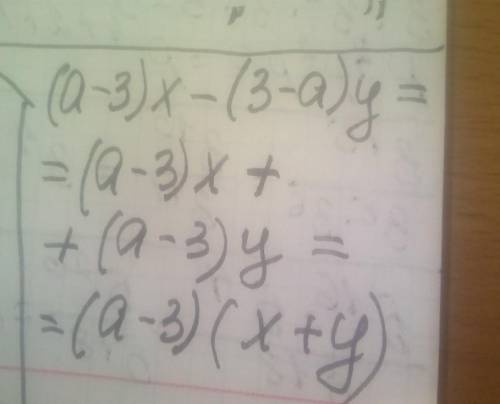 (a-3)x-(3-a)y=
=(a-3)x+
+(a-3)y=
=(a-3)(x+y)